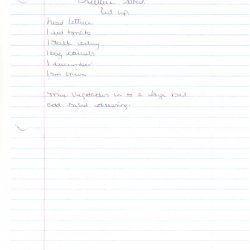 cut up
head lettuce
1 red tomato
1 stalk celery
1 bag carrots
1 cucumber
1 sm onion
mix vegetables in to a large bowl
add salad dressing.